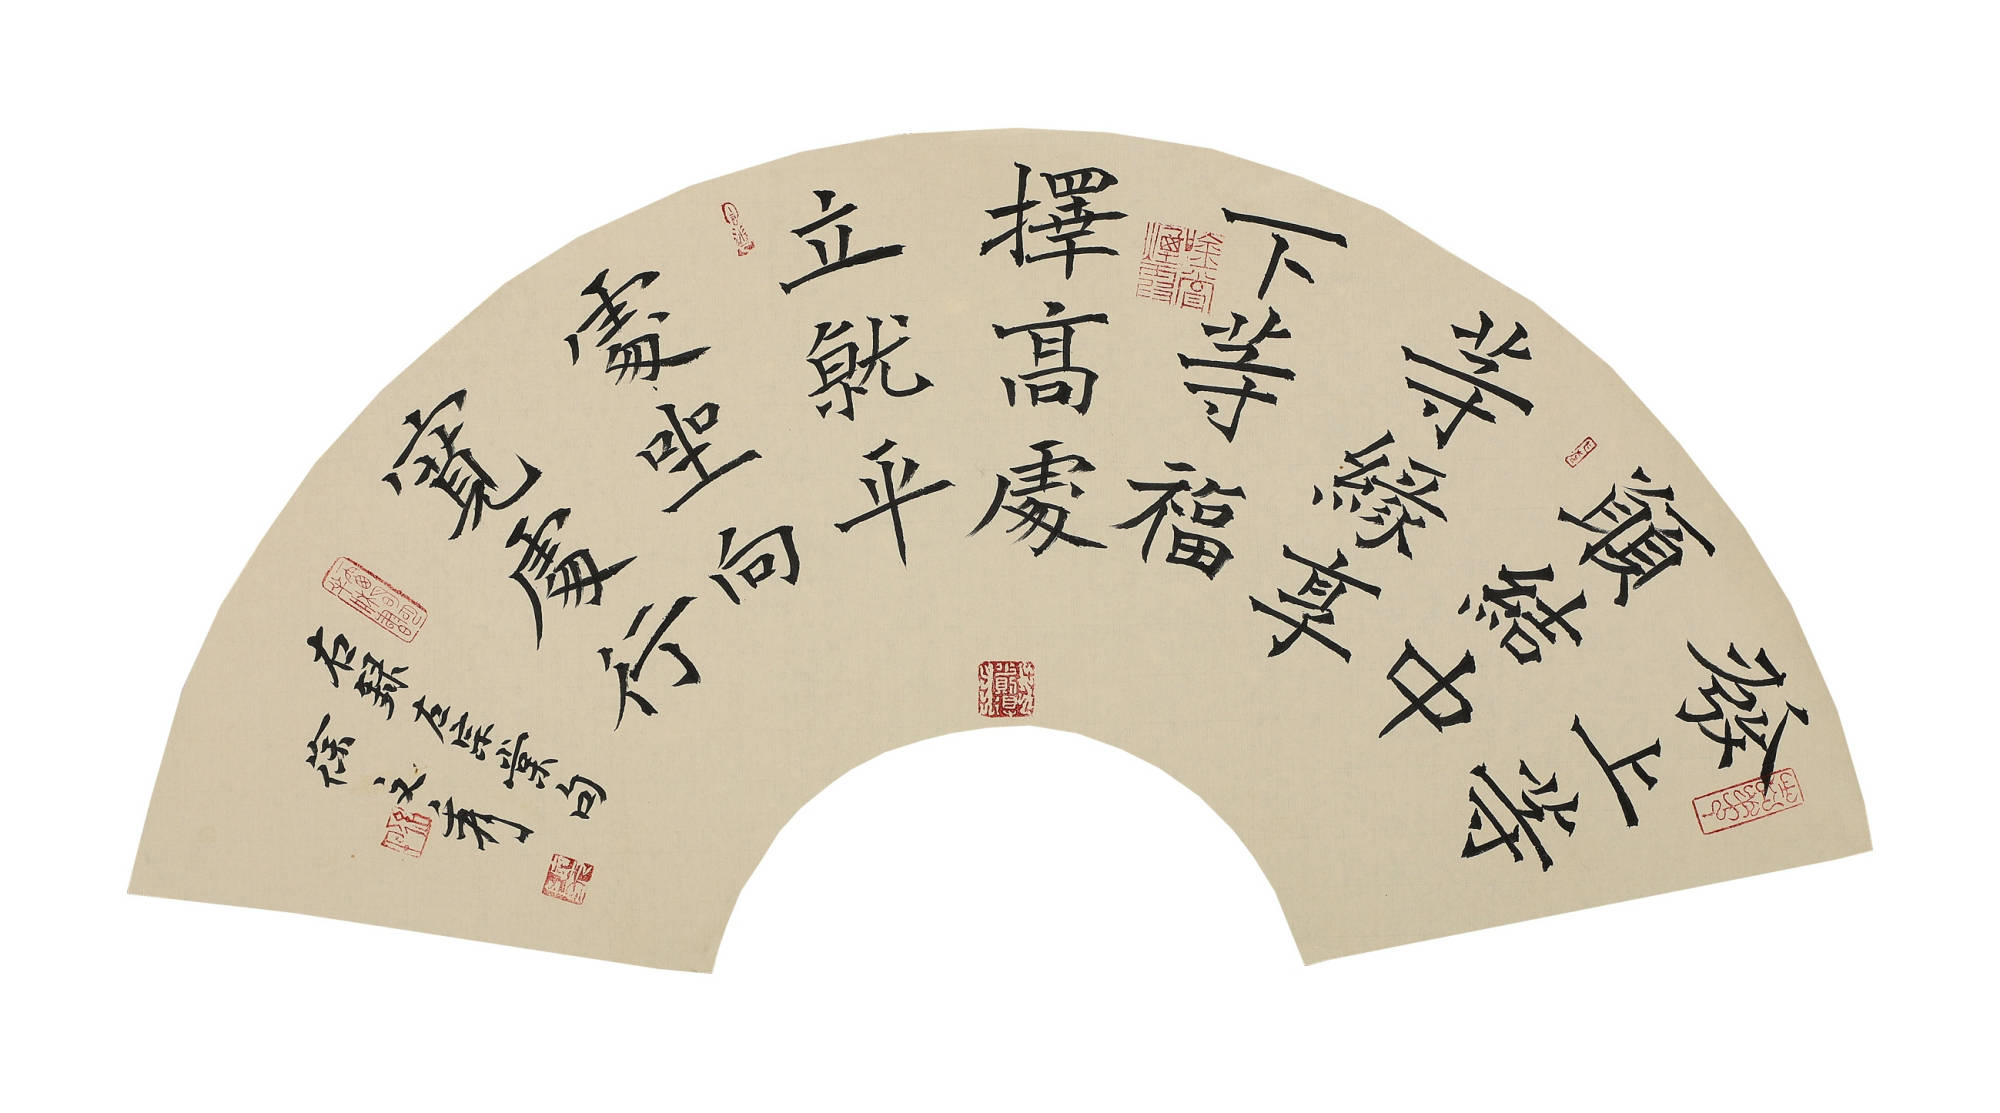 發上等
願結中
等緣享
下等福
擇高處
立就平
處坐向
寬處行
右錄左宗棠句
徐文